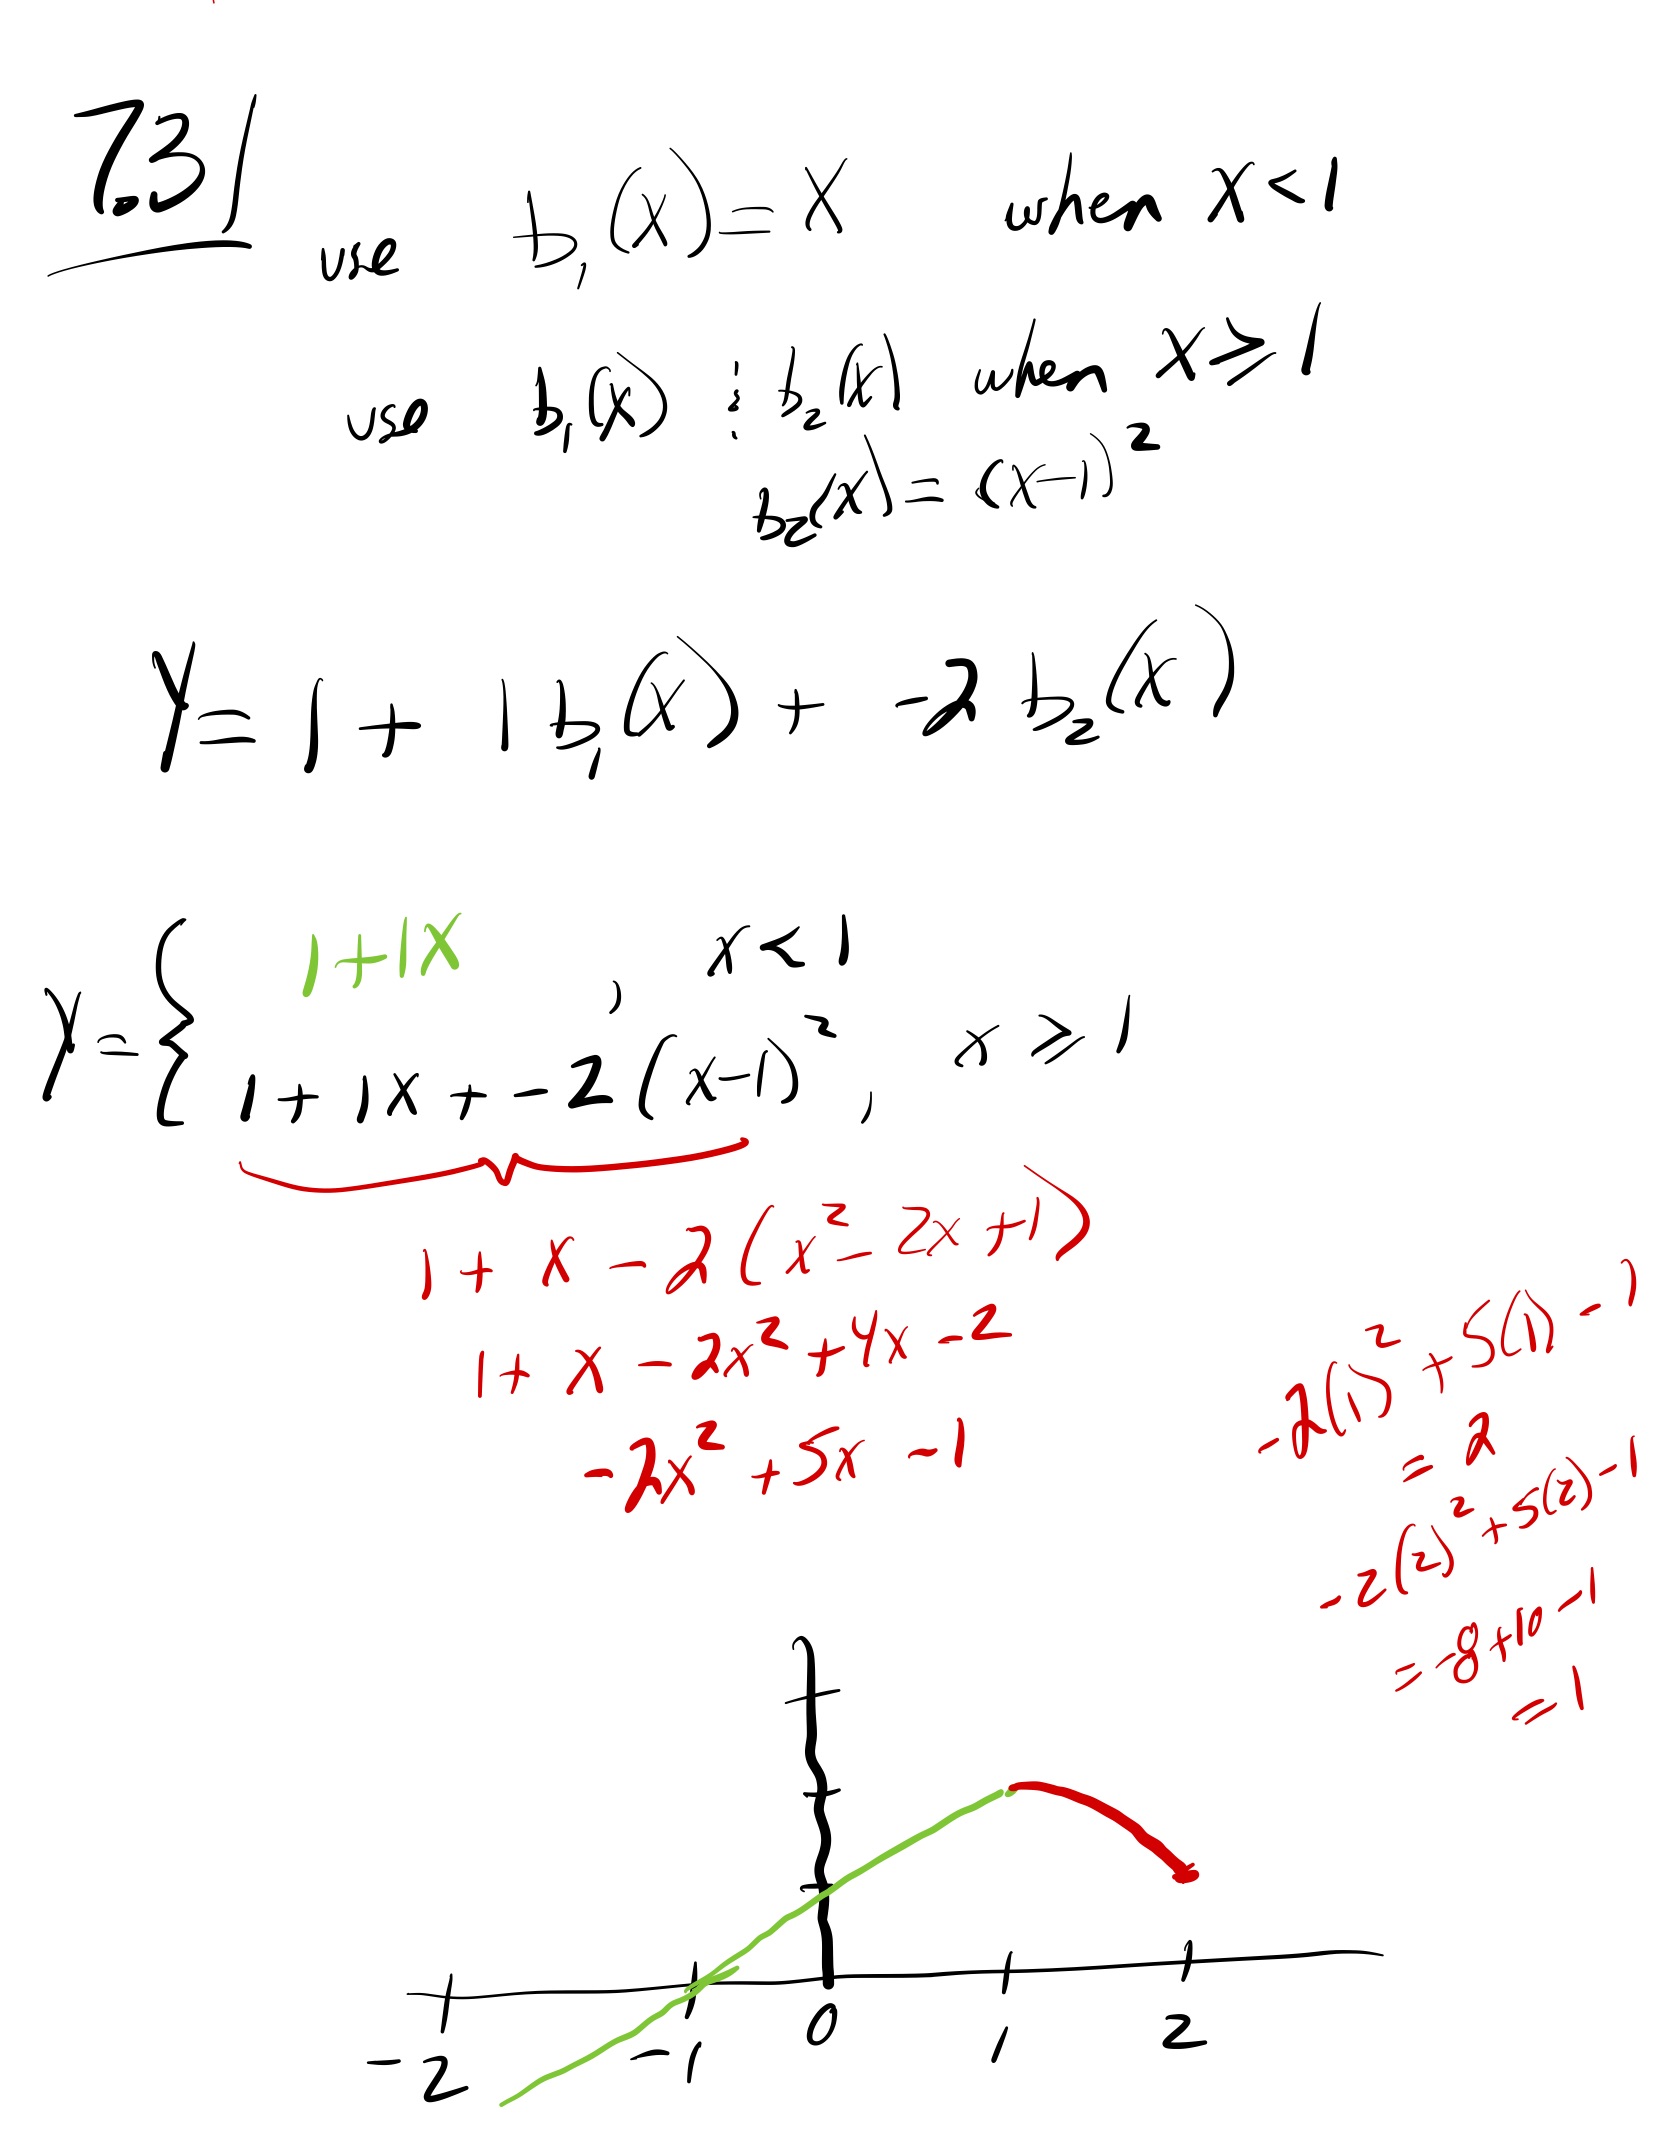 7.3
use b₁(x) = x when x < 1
use b₁(x) & b₂(x) when x ≥ 1
b₂(x) = (x-1)²
Y = 1 + 1 b₁(x) + -2 b₂(x)
Y = {
1+1x , x < 1
1 + 1x + -2(x-1)² , x ≥ 1
1 + x - 2(x² - 2x + 1)
1 + x - 2x² + 4x - 2
-2x² + 5x - 1
-2(1)² + 5(1) - 1
= 2
-2(2)² + 5(2) - 1
= -8 + 10 - 1
= 1
-2 -1 0 1 2